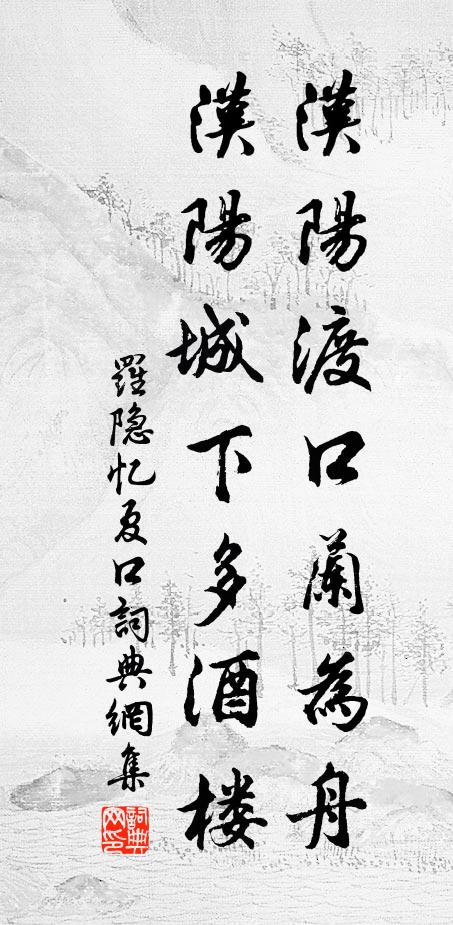 漢陽渡口蘭為舟
漢陽城下多酒楼
羅隐忆夏口詞典網集
詞典
网印